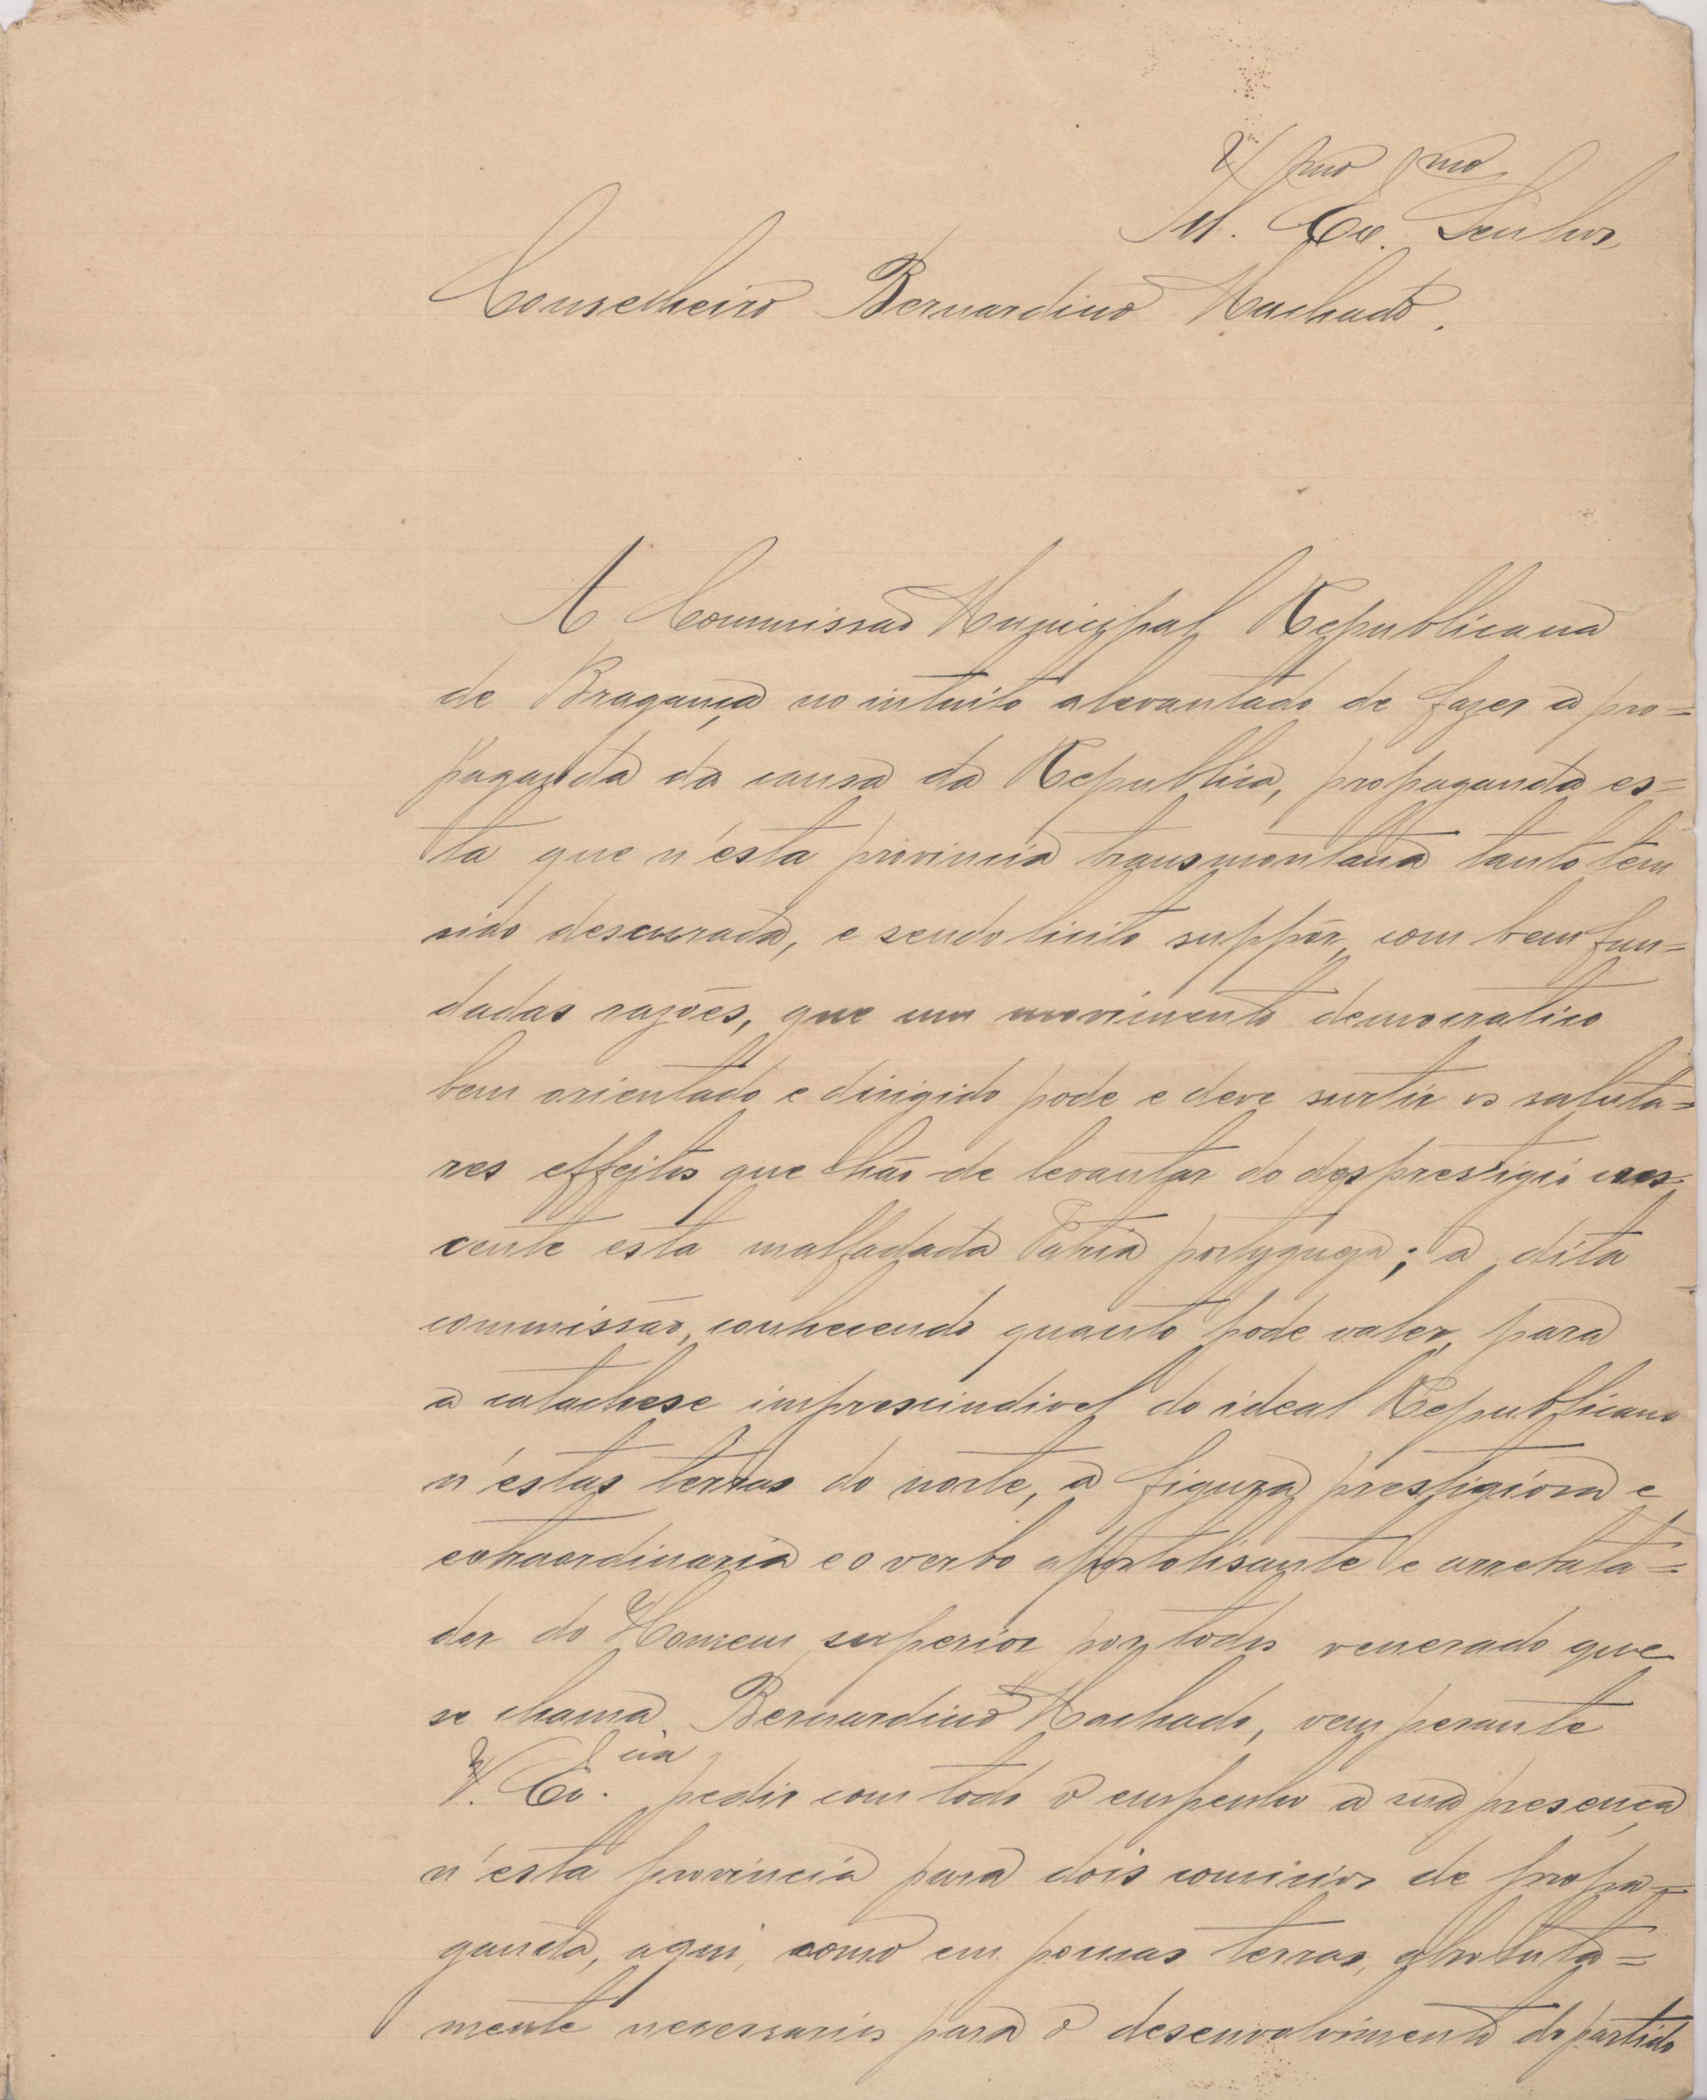 Ill.mo Ex.mo Senhor
Conselheiro Bernardino Machado.
A Commissão Municipal Republicana
de Bragança no intuito alevantado de fazer a pro=
paganda da causa da Republica, propaganda es=
ta que n'esta provincia transmontana tanto tem
sido descurada, e sendo licito suppôr, com bem fun=
dadas razões, que um movimento democratico
bem orientado e dirigido pode e deve surtir os saluta=
res effeitos que hão-de levantar do desprestigio cres=
cente esta malfadada Patria portugueza; a dita
commissão, conhecendo quanto pode valer, para
a catachese imprescindivel do ideal Republicano
n'estas terras do norte, a figura prestigiosa e
extraordinaria e o verbo apostolisante e arrebata=
dor do Homem superior por todos venerado que
se chama Bernardino Machado, vem perante
V. Ex.cia pedir com todo o empenho a sua presença
n'esta provincia para dois comicios de propa=
ganda, aqui, como em poucas terras, absoluta=
mente necessarios para o desenvolvimento do partido